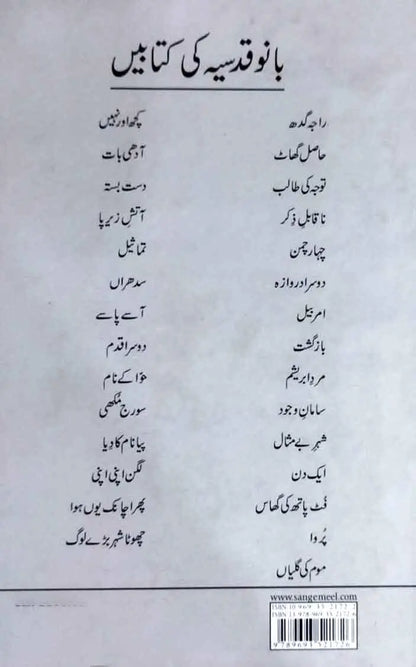 بانو قدسیہ کی کتابیں
راجہ گدھ
حاصل گھاٹ
توجہ کی طالب
ناقابلِ ذکر
چہار چمن
دوسرا دروازہ
امر بیل
بازگشت
مردِ ابریشم
سامانِ وجود
شہرِ بے مثال
ایک دن
فٹ پاتھ کی گھاس
پُروا
موم کی گلیاں
کچھ اور نہیں
آدھی بات
دست بستہ
آتش زیرِ پا
تماثیل
سدھراں
آسے پاسے
دوسرا قدم
حوّا کے نام
سورج مُکھی
پیا نام کا دِیا
لگن اپنی اپنی
پھر اچانک یوں ہوا
چھوٹا شہر بڑے لوگ
www.sangemeel.com
ISBN 10 969 35 2172 2
ISBN 13 978 969 35 2172 6
9789693521726